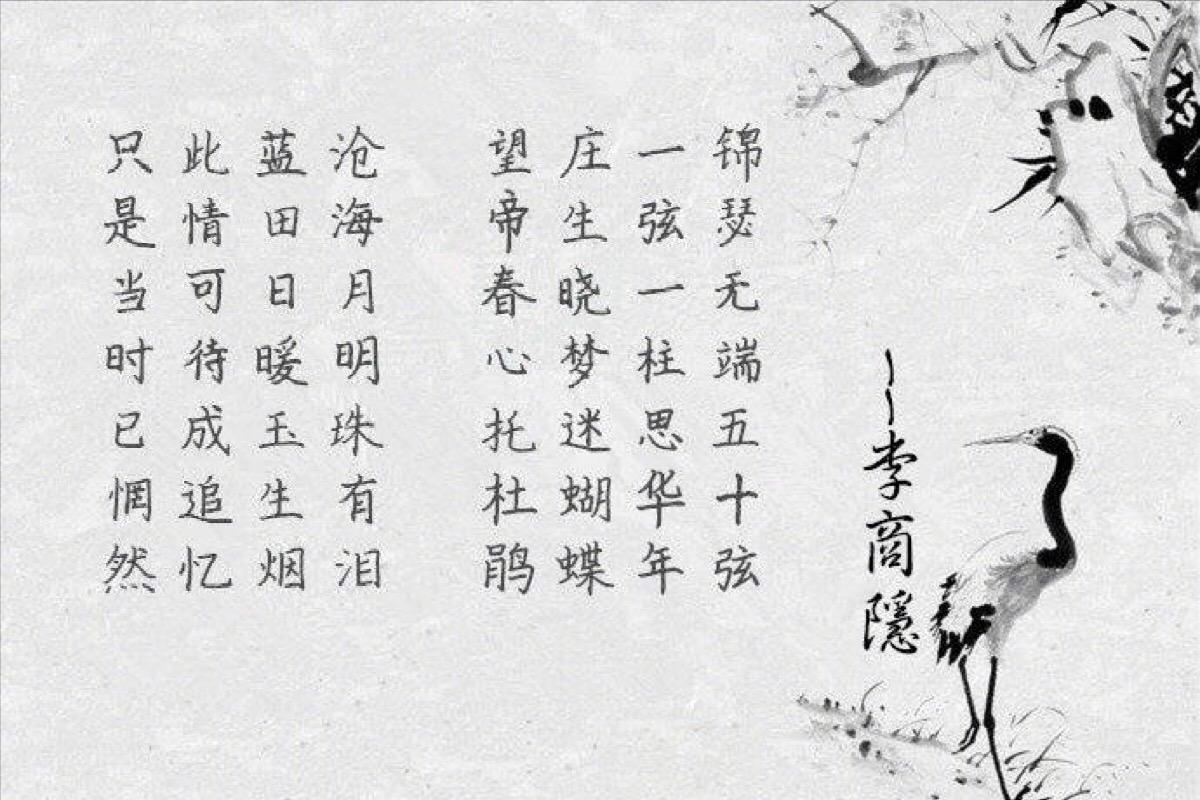 锦瑟无端五十弦
一弦一柱思华年
庄生晓梦迷蝴蝶
望帝春心托杜鹃
沧海月明珠有泪
蓝田日暖玉生烟
此情可待成追忆
只是当时已惘然
~~李商隱